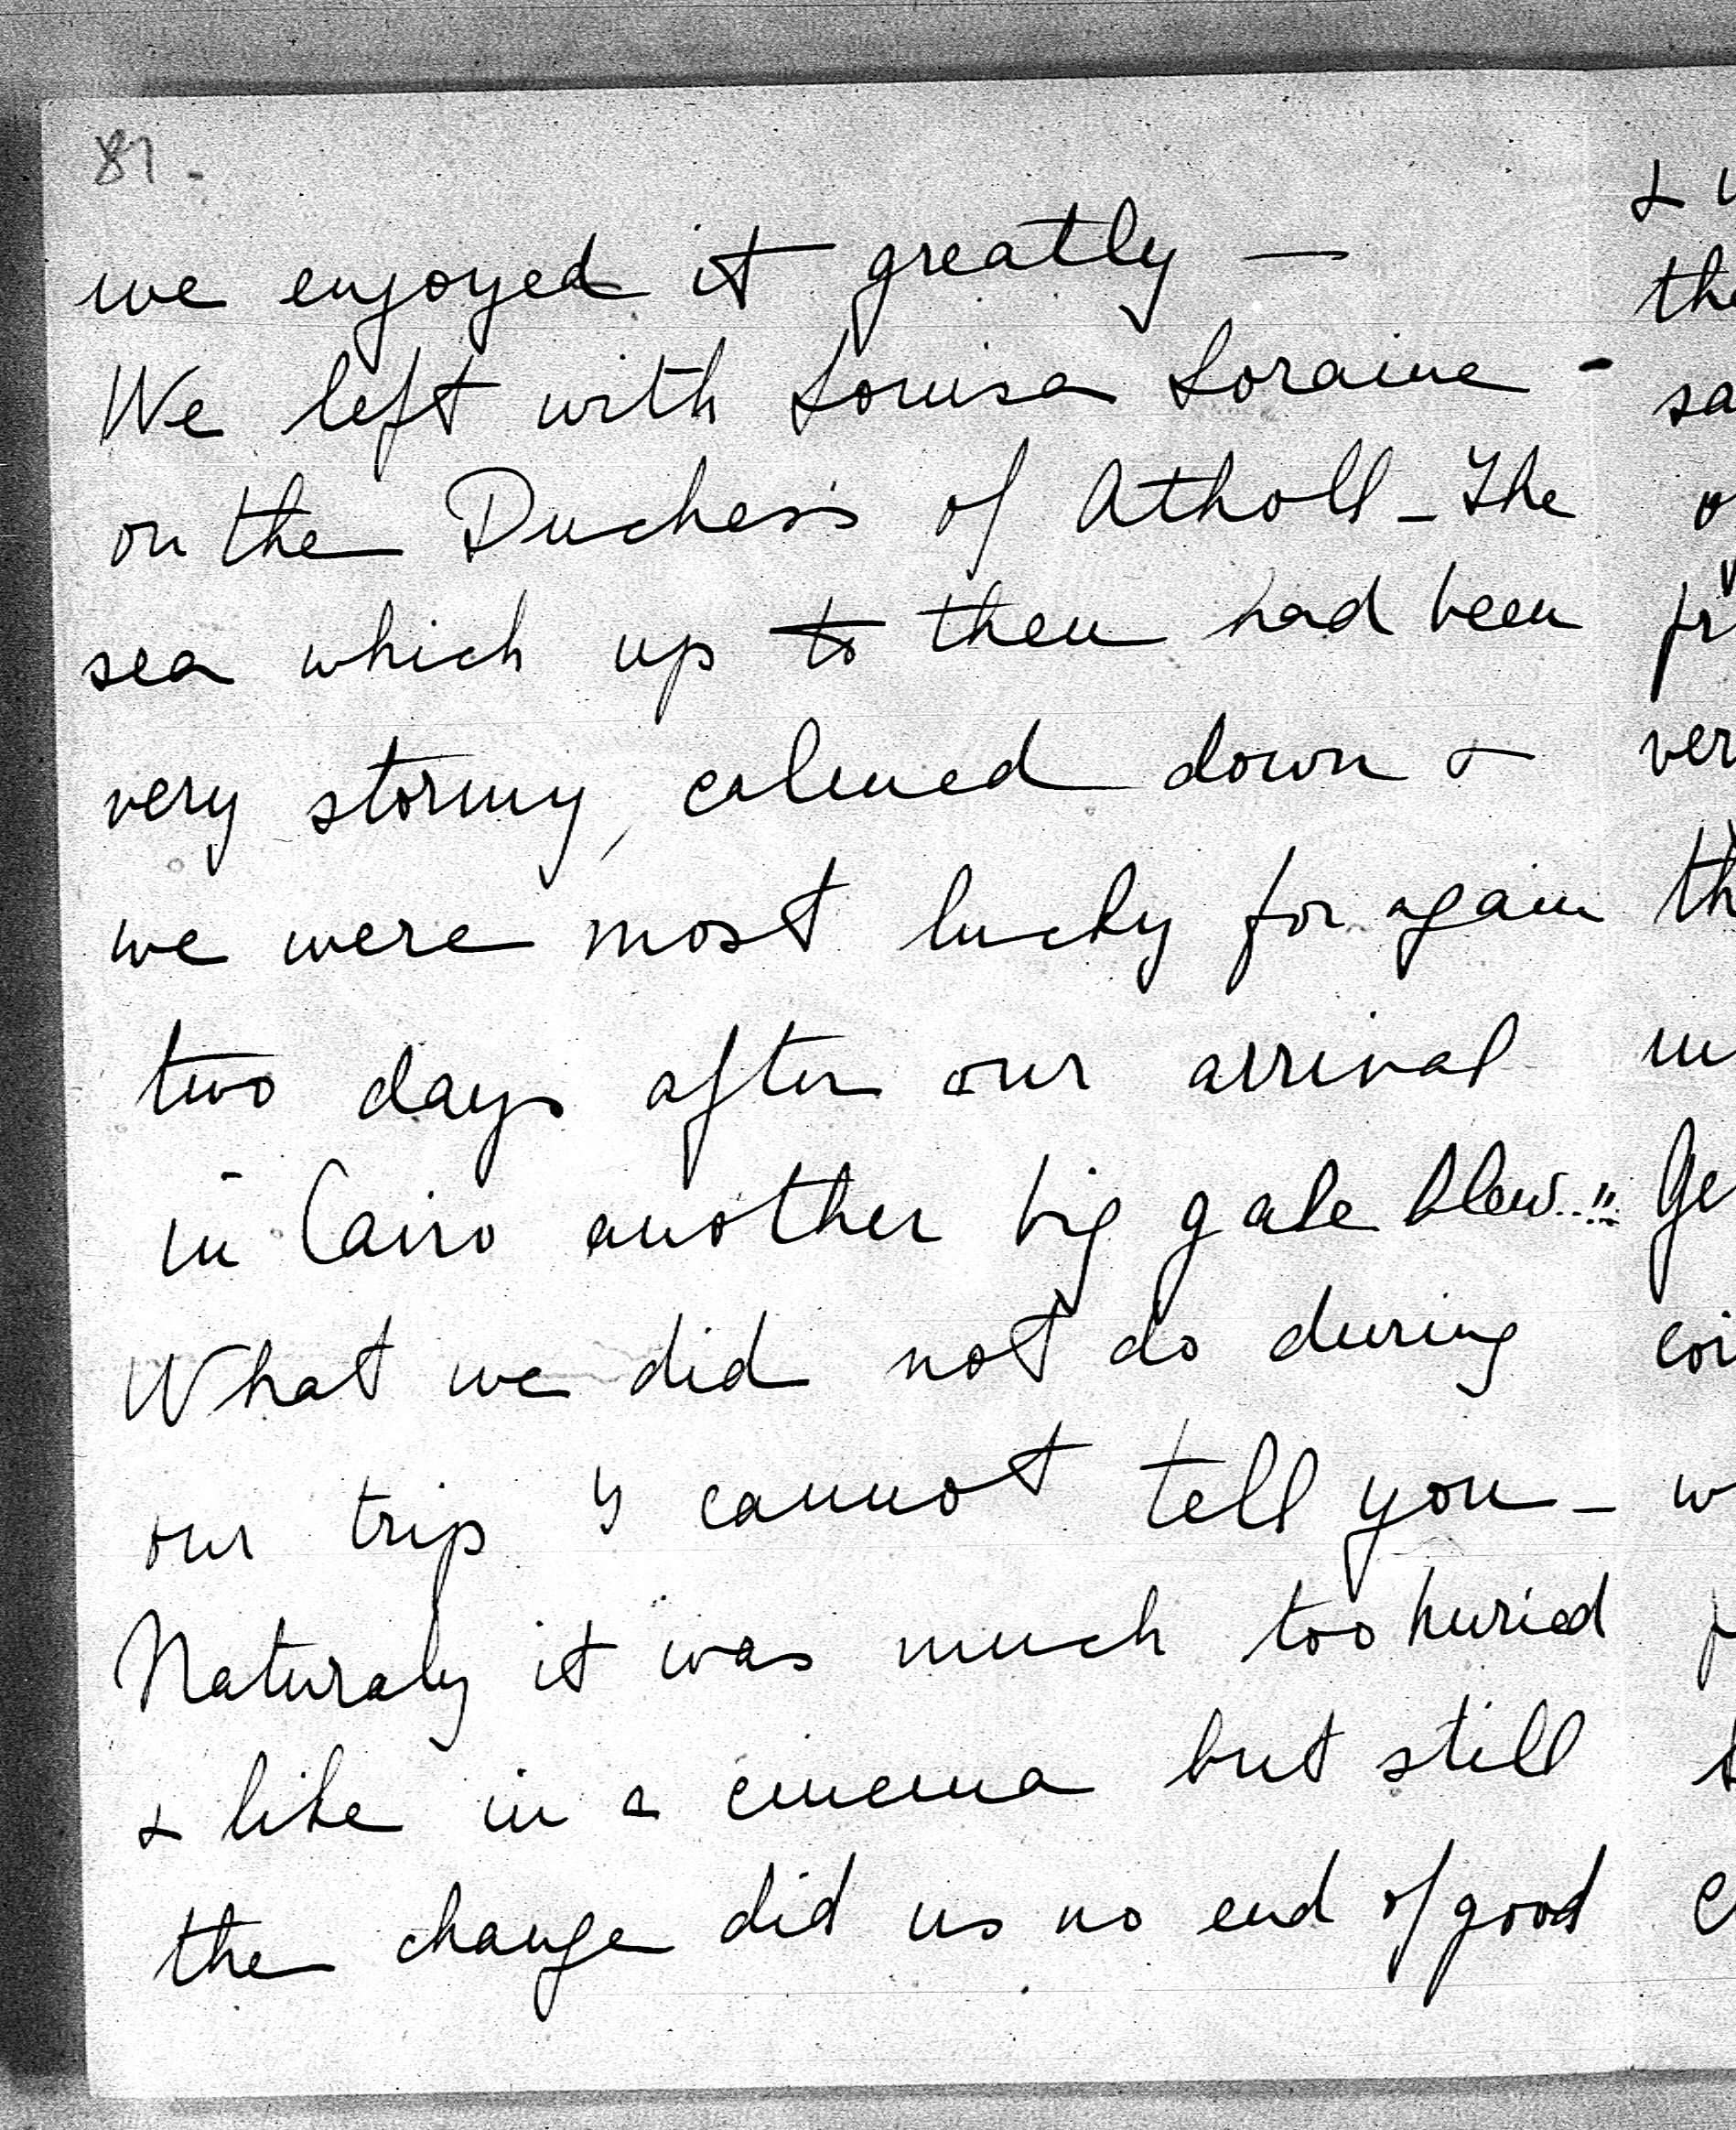 81.
we enjoyed it greatly —
We left with Louisa Loraine -
on the Duchess of Atholl - The
sea which up to then had been
very stormy, calmed down &
we were most lucky for again
two days after our arrival
in Cairo another big gale blew..!!
What we did not do during
our trip I cannot tell you -
Naturaly it was much too huried
& like in a cinema but still
the change did us no end of good
&
the
sa
o
pr
ver
th
in
Ge
coi
w